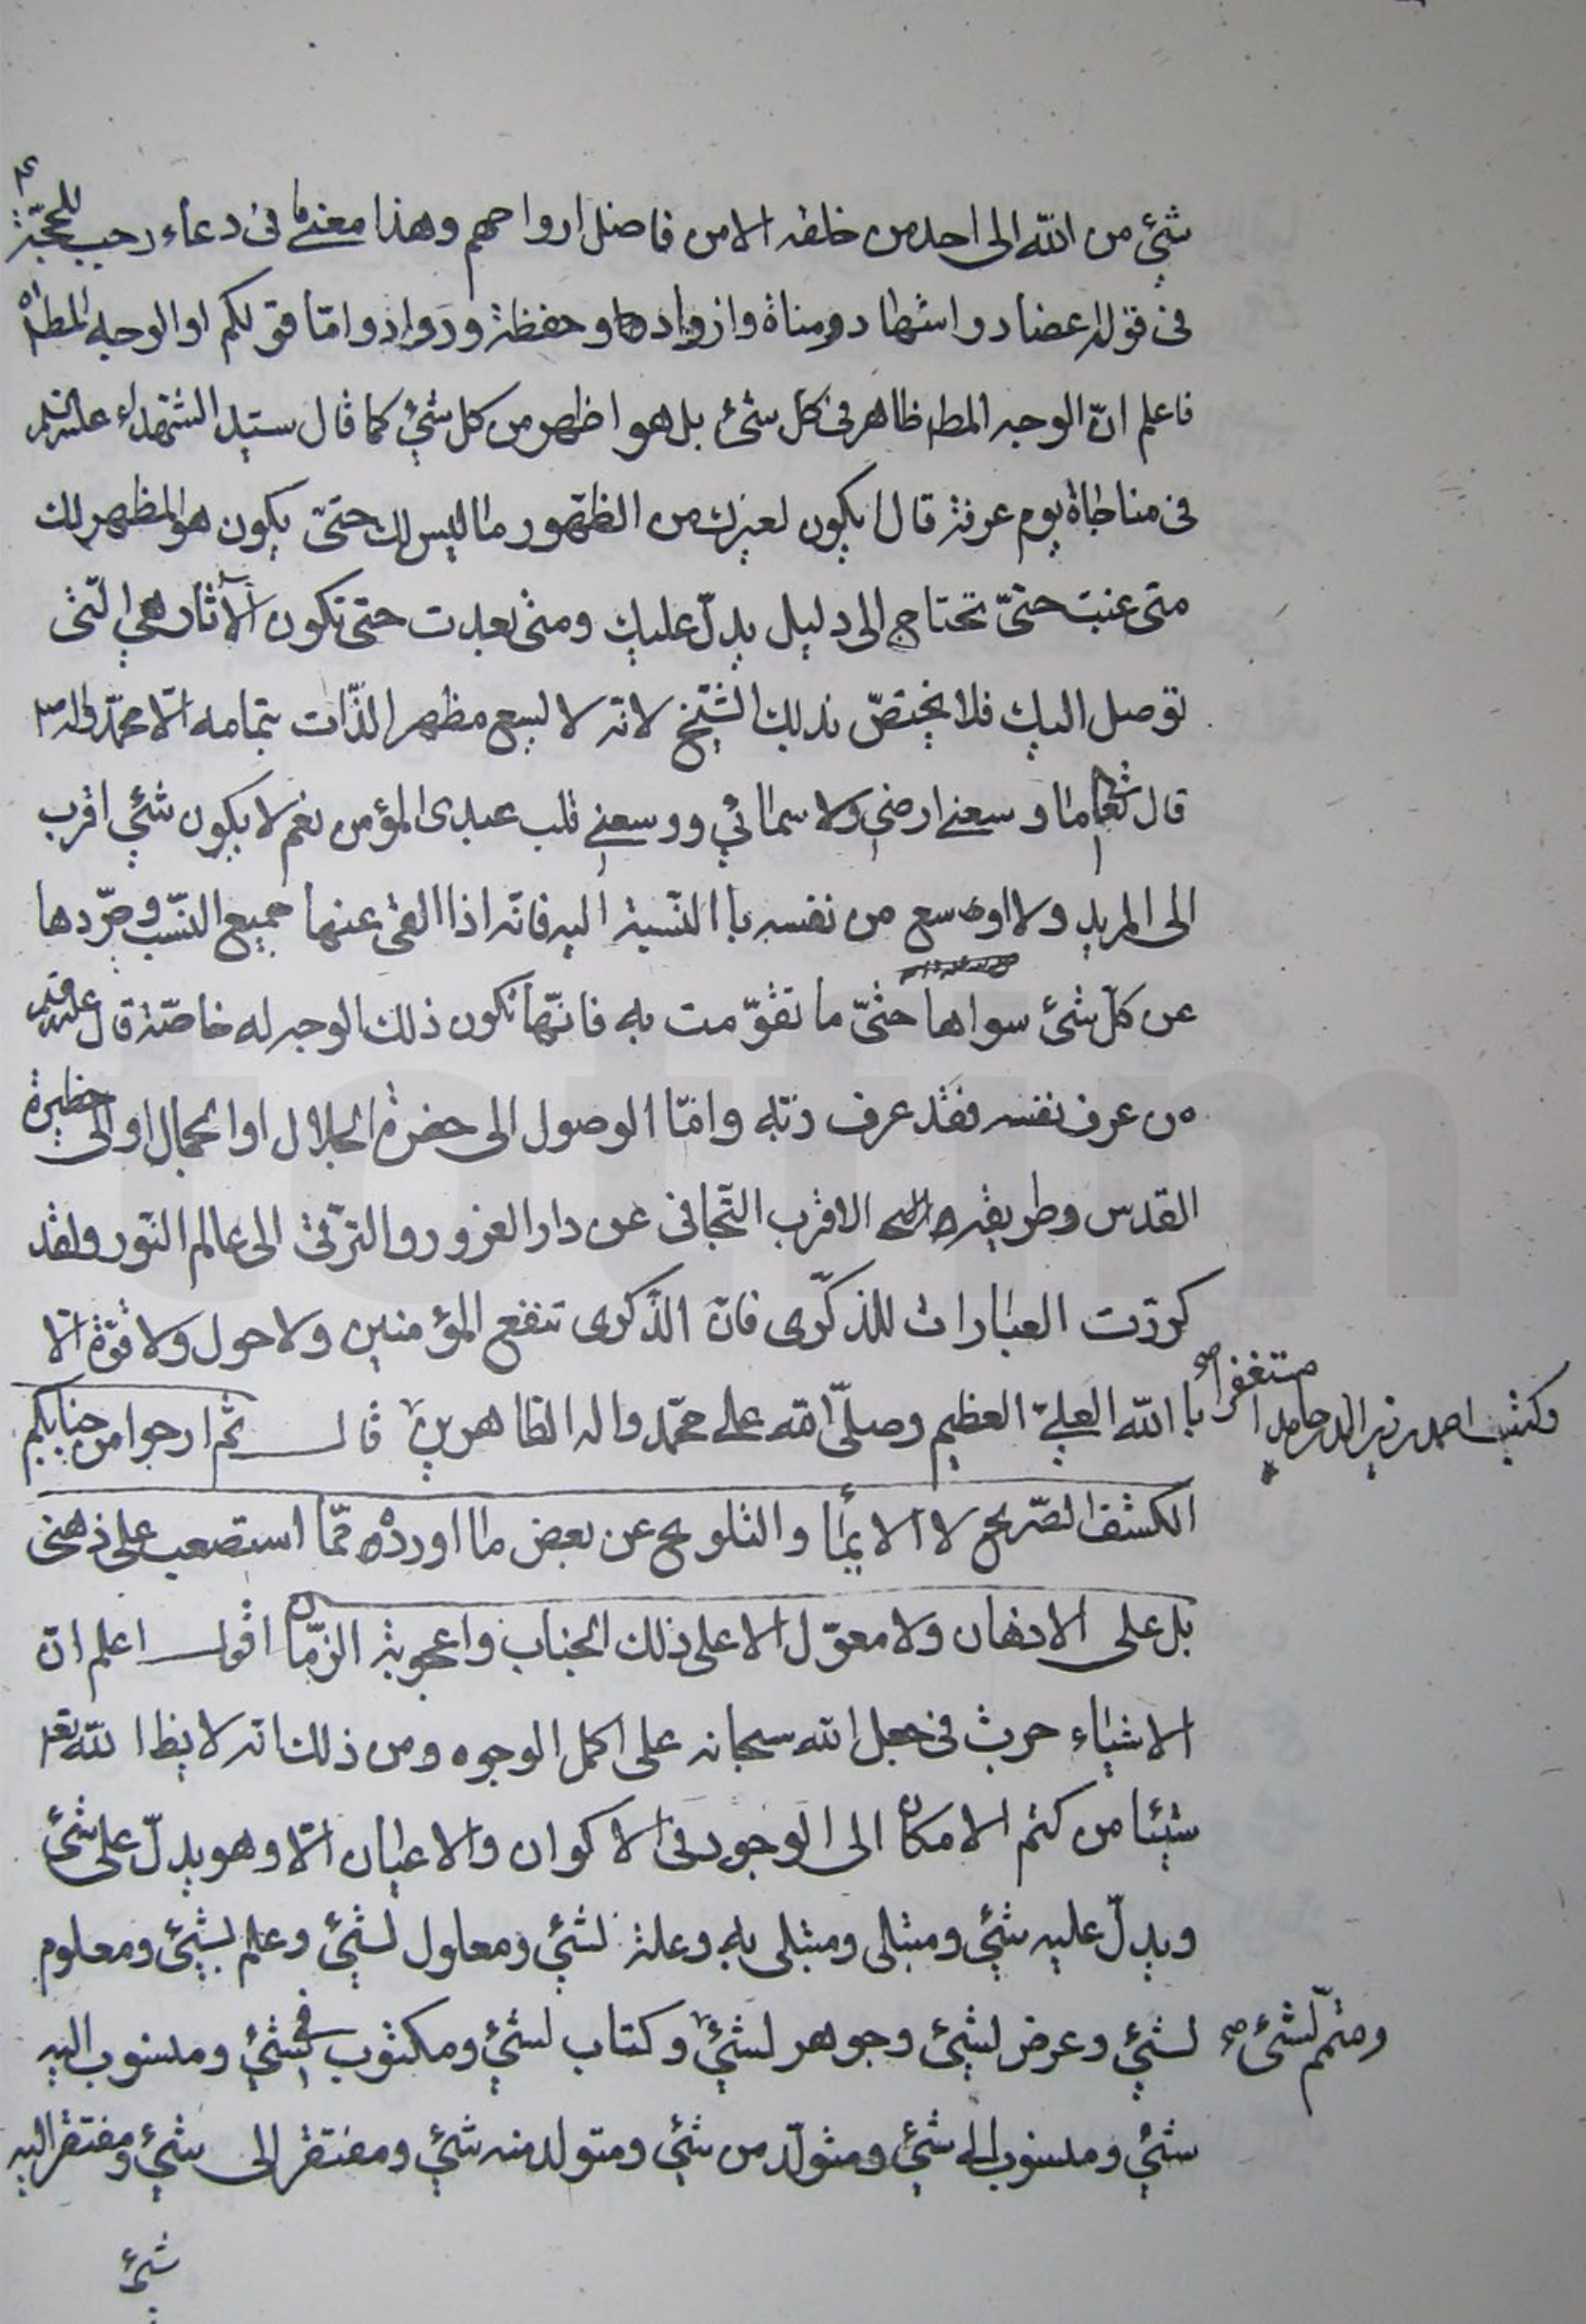 شئ من الله الى احد من خلقه الا من فاضل ارواحهم وهذا معنى ما فى دعاء رجب للحجّة ع
فى قوله اعضاد واشهاد ومناة وازواد وحفظة وروّاد وامّا قولكم او الوجه المط اه
فاعلم انّ الوجه المط ظاهر فى كل شئ بل هو اظهر من كل شئ كما قال سيّد الشهداء عليه السلم
فى مناجاة يوم عرفة قال ايكون لغيرك من الظهور ما ليس لك حتى يكون هو المظهر لك
متى غبت حتىّ تحتاج الى دليل يدلّ عليك ومتى بعدت حتى تكون الآثار هي الّتى
توصل اليك فلا يختصّ بذلك الشيخ لانّه لا يسع مظهر الذّات بتمامه الّا محمّد واله ص
قال تعا ما وسعنى ارضى ولا سمائي ووسعنى قلب عبدى المؤمن نعم لا يكون شئ اقرب
الى المريد ولا اوسع من نفسه باالنسبة اليه فانّه اذا القى عنها جميع النسب وجرّدها
عن كلّ شئ سواها حتىّ ما تقوّمت به فانّها تكون ذلك الوجه له خاصّة قال عليه السلم قد
من عرف نفسه فقد عرف ربّه وامّا الوصول الى حضرة الجلال او الجمال او الى حظيرة
القدس وطريقه الاقرب التّجافى عن دار الغرور والترّقى الى عالم النّور ولقد
كررّت العبارات للذكّرى فانّ الذّكرى تنفع المؤمنين ولا حول ولا قوّة الّا
باالله العلىّ العظيم وصلىّ الله على محمّد واله الطاهرين قال ثم ارجوا من جنابكم
وكتب احمد بن زين الدين حامدا مستغفرا صح
الكشف الصّريح لا الايماء والتلويح عن بعض ما اورده ممّا استصعب على ذهنى
بل على الاذهان ولا معوّل الا على ذلك الجناب واعجوبة الزمان اقول اعلم انّ
الاشياء جرت فى جعل الله سبحانه على اكمل الوجوه ومن ذلك انه لا يظ الله تع
شيئا من كتم الامكان الى الوجود فى الاكوان والاعيان الّا وهو يدلّ على شئ
ويدلّ عليه شئ ومبتلى ومبتلى به وعلة لشئ ومعلول لشئ وعلم لشئ ومعلوم
لشئ وعرض لشئ وجوهر لشئ وكتاب لشئ ومكتوب فى شئ ومنسوب اليه
ومتمّم لشئ صح
شئ ومنسوب الى شئ ومتولّد من شئ ومتولد منه شئ ومفتقر الى شئ ومفتقر اليه
شئ